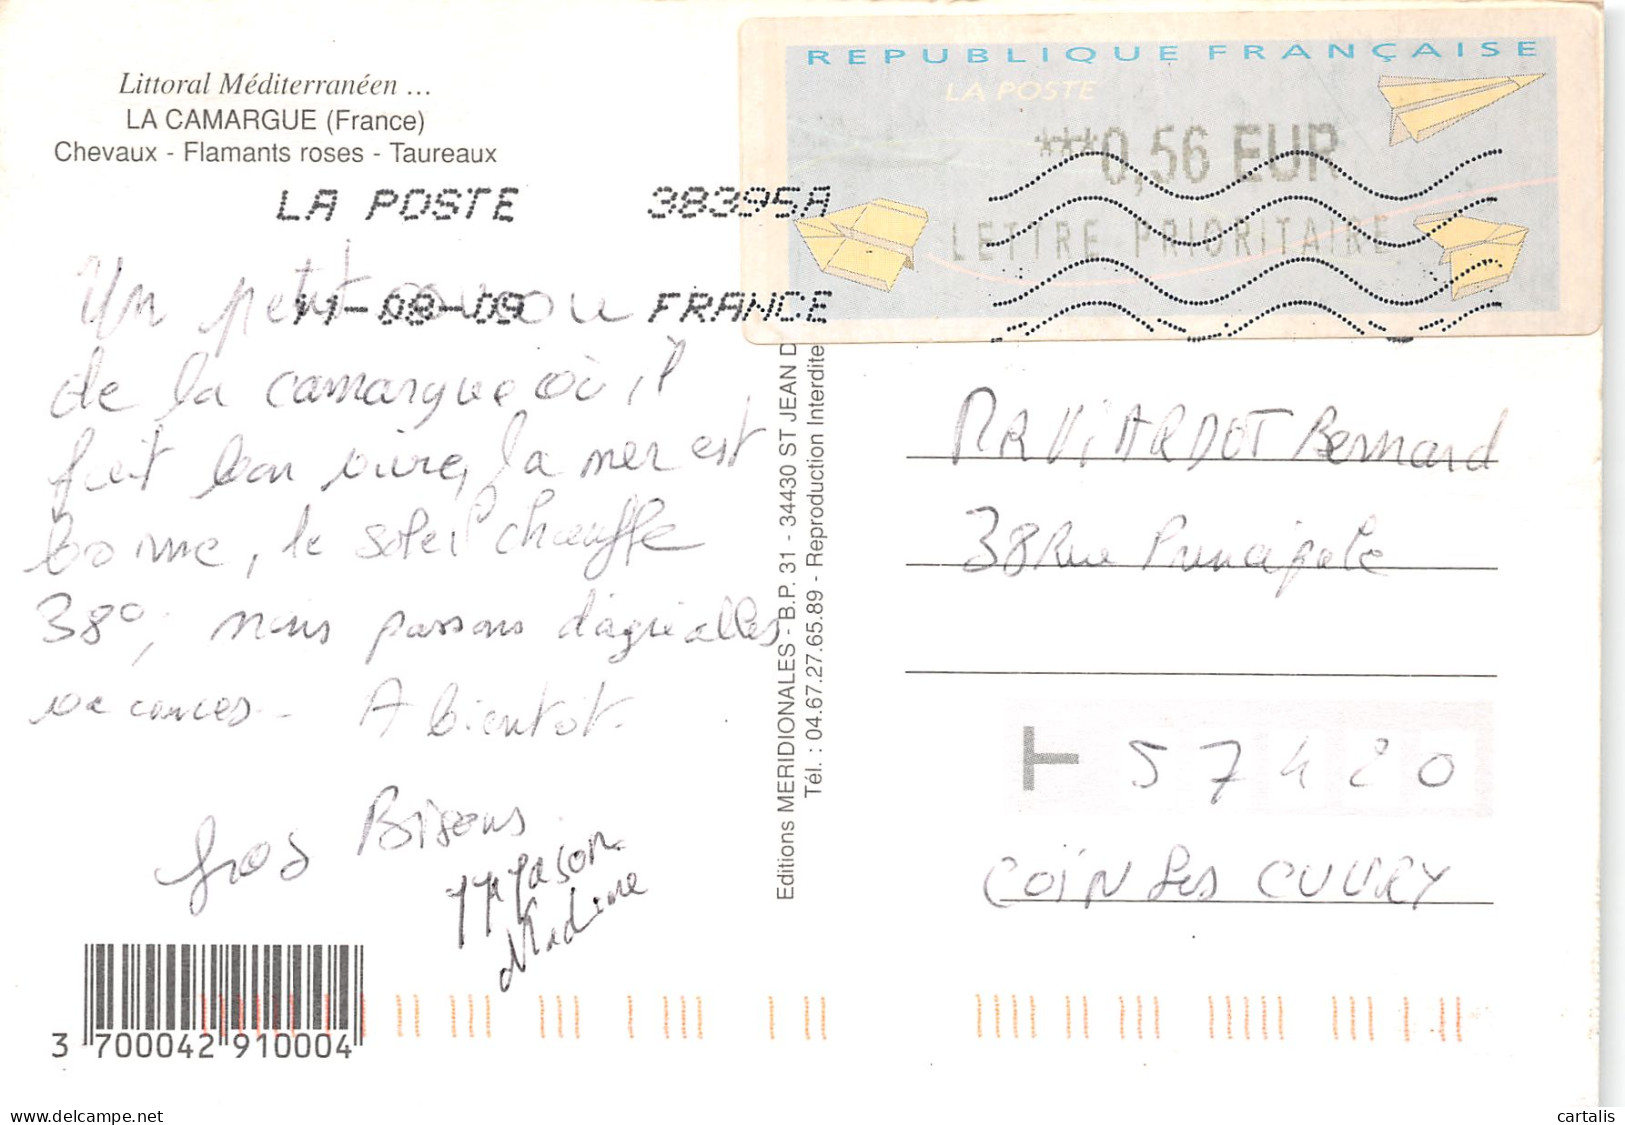 Littoral Méditerranéen ...
LA CAMARGUE (France)
Chevaux - Flamants roses - Taureaux
REPUBLIQUE FRANÇAISE
LA POSTE
***0,56 EUR
LETTRE PRIORITAIRE
LA POSTE 38395A
11-08-09 FRANCE
Un petit coucou
de la camargue où il
fait bon vivre, la mer est
bonne, le soleil chauffe
38°, nous passons d'agréables
vacances. A bientot.
gros Bisous
Jason
Nadine
Editions MERIDIONALES - B.P. 31 - 34430 ST JEAN D
Tél. : 04.67.27.65.89 - Reproduction Interdite
MR VIARDOT Bernard
38 Rue Principale
57420
COIN les CUVRY
3 700042 910004
cartalis